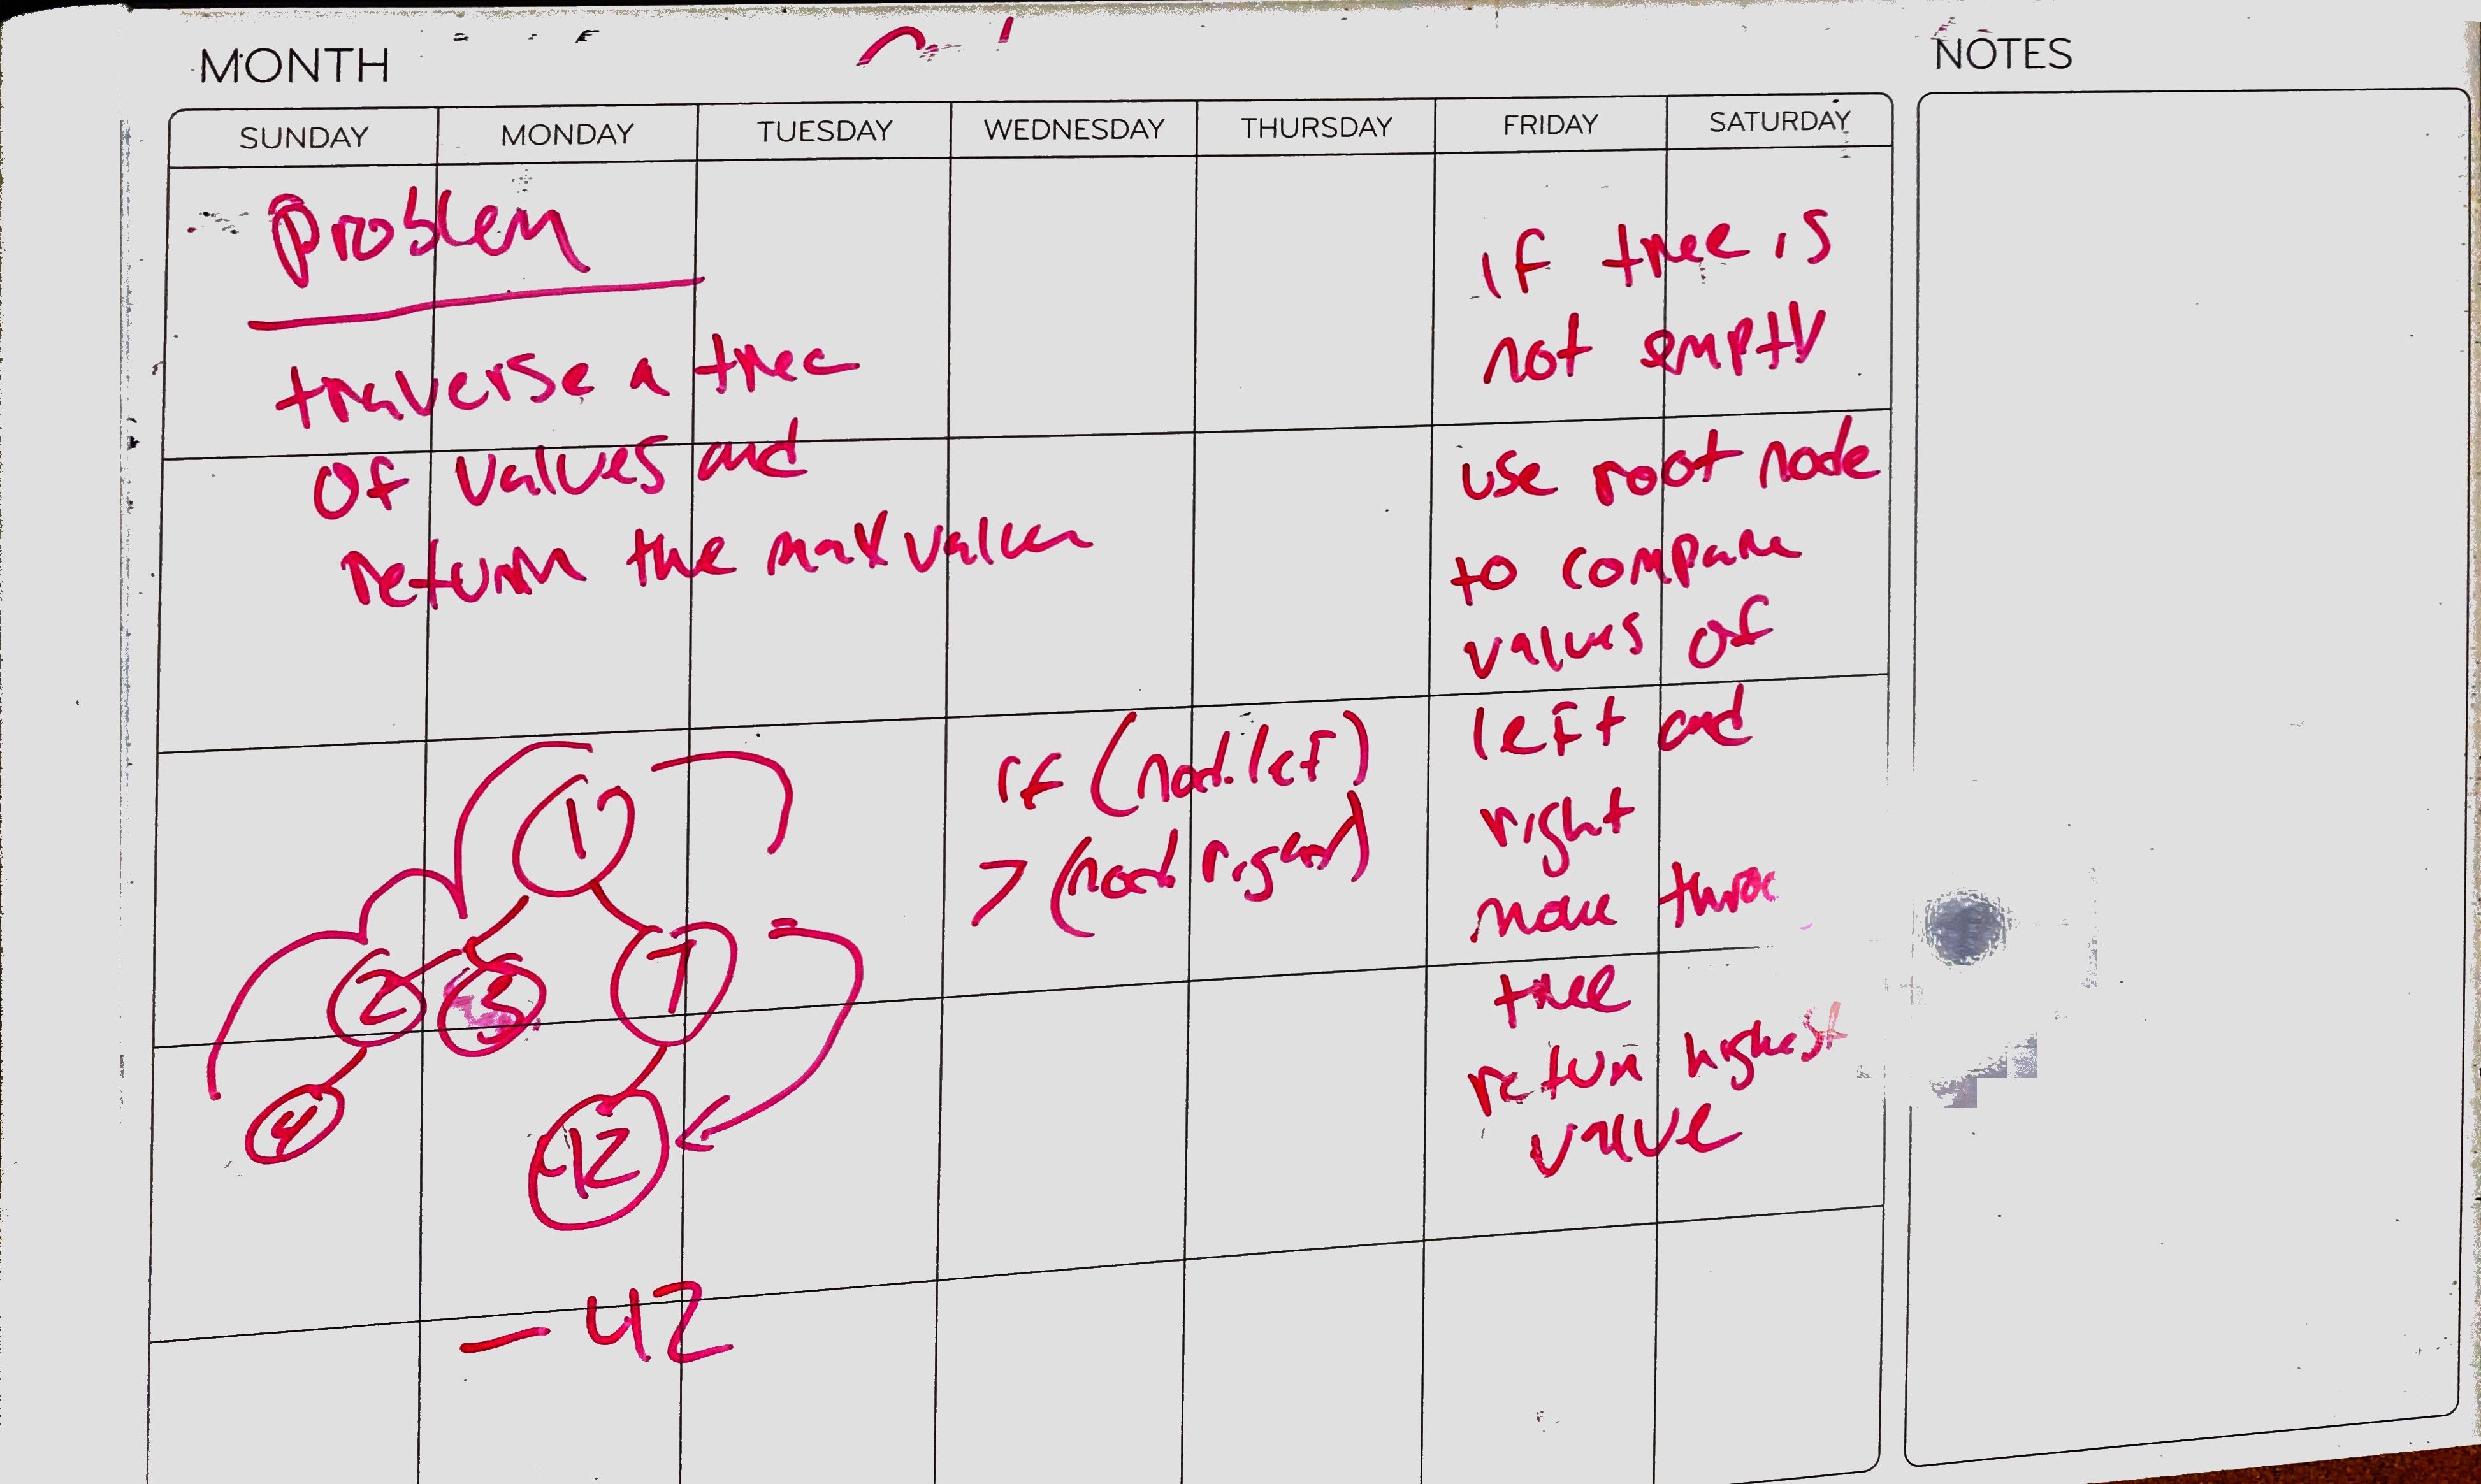 MONTH
NOTES
SUNDAY MONDAY TUESDAY WEDNESDAY THURSDAY FRIDAY SATURDAY
Problem
traverse a tree
of values and
return the max value
1
2 3 7
4 12
- 42
if (nod.left)
> (nod.right)
if tree is
not empty
use root node
to compare
values of
left and
right
move throu
tree
return highest
value